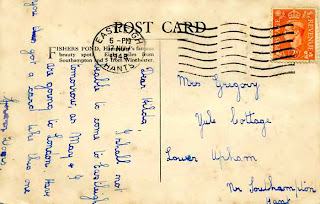 POST CARD
FISHERS POND, Hampshire's famous
beauty spot. Eight miles from
Southampton and 5 from Winchester.
EASTLEIGH
5 - PM
17 NOV
1948
HANTS
REVENUE
Dear Hilda
I shall not
be able to come to Eastleigh
tomorrow as Mary & I
are going to London. Have
you got a card like this one
Mrs Gregory
Yule Cottage
Lower Upham
Nr Southampton
Hants